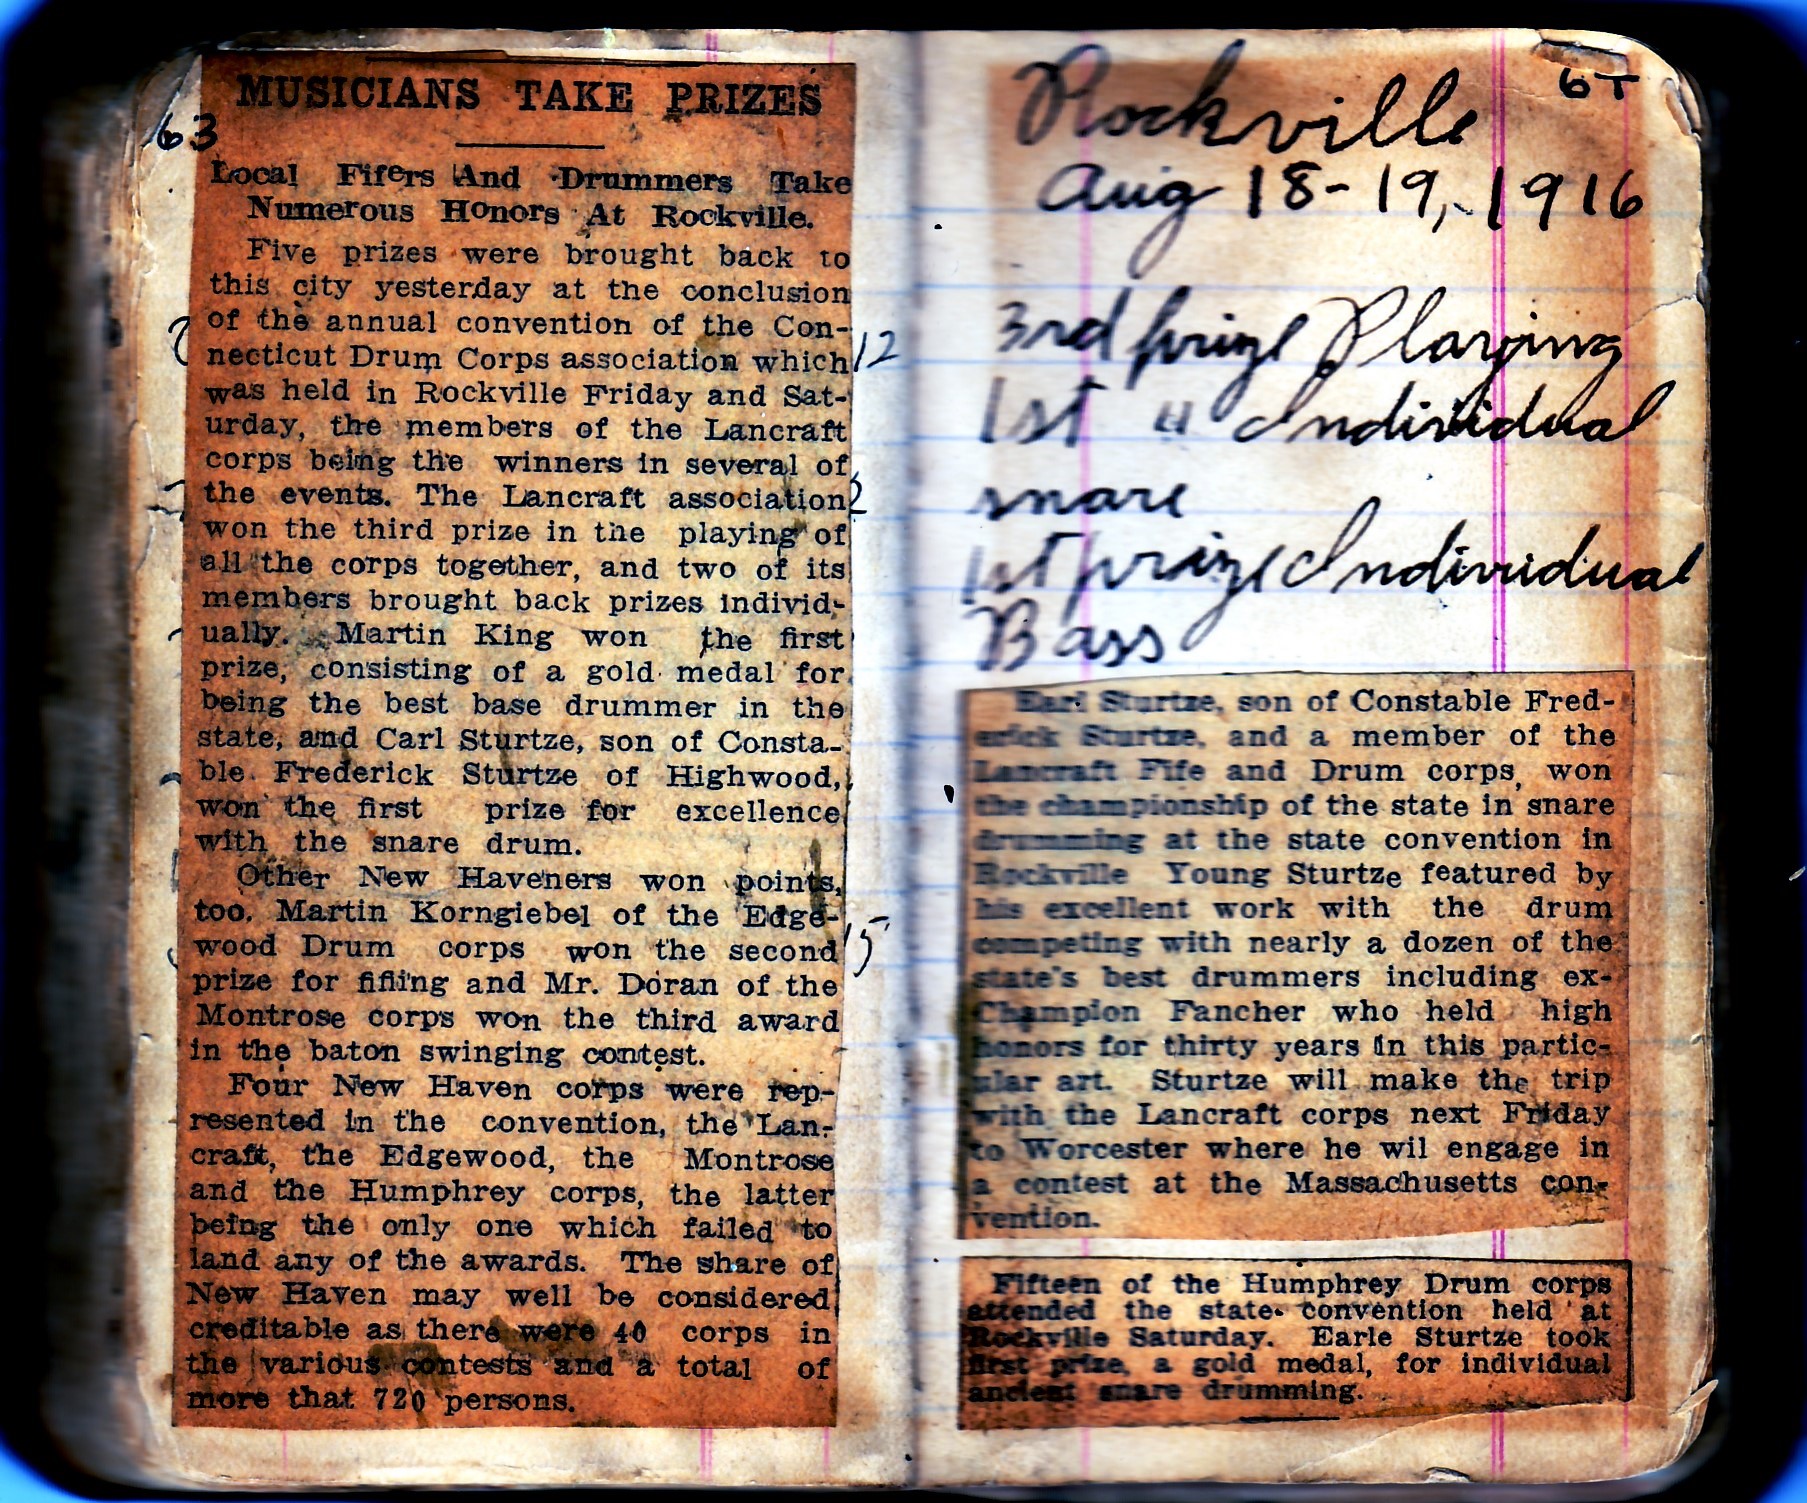 63
MUSICIANS TAKE PRIZES
Local Fifers And Drummers Take
Numerous Honors At Rockville.
Five prizes were brought back to
this city yesterday at the conclusion
of the annual convention of the Con-
necticut Drum Corps association which
was held in Rockville Friday and Sat-
urday, the members of the Lancraft
corps being the winners in several of
the events. The Lancraft association
won the third prize in the playing of
all the corps together, and two of its
members brought back prizes individ-
ually. Martin King won the first
prize, consisting of a gold medal for
being the best base drummer in the
state, and Carl Sturtze, son of Consta-
ble Frederick Sturtze of Highwood,
won the first prize for excellence
with the snare drum.
Other New Haveners won points,
too. Martin Korngiebel of the Edge-
wood Drum corps won the second
prize for fifing and Mr. Doran of the
Montrose corps won the third award
in the baton swinging contest.
Four New Haven corps were rep-
resented in the convention, the Lan-
craft, the Edgewood, the Montrose
and the Humphrey corps, the latter
being the only one which failed to
land any of the awards. The share of
New Haven may well be considered
creditable as there were 40 corps in
the various contests and a total of
more that 720 persons.
12
2
15
Rockville
Aug 18-19, 1916
3rd prize Playing
1st " Individual
snare
1st prize Individual
Bass
Earl Sturtze, son of Constable Fred-
erick Sturtze, and a member of the
Lancraft Fife and Drum corps, won
the championship of the state in snare
drumming at the state convention in
Rockville Young Sturtze featured by
his excellent work with the drum
competing with nearly a dozen of the
state's best drummers including ex-
Champion Fancher who held high
honors for thirty years in this partic-
ular art. Sturtze will make the trip
with the Lancraft corps next Friday
to Worcester where he wil engage in
a contest at the Massachusetts con-
vention.
Fifteen of the Humphrey Drum corps
attended the state convention held at
Rockville Saturday. Earle Sturtze took
first prize, a gold medal, for individual
ancient snare drumming.